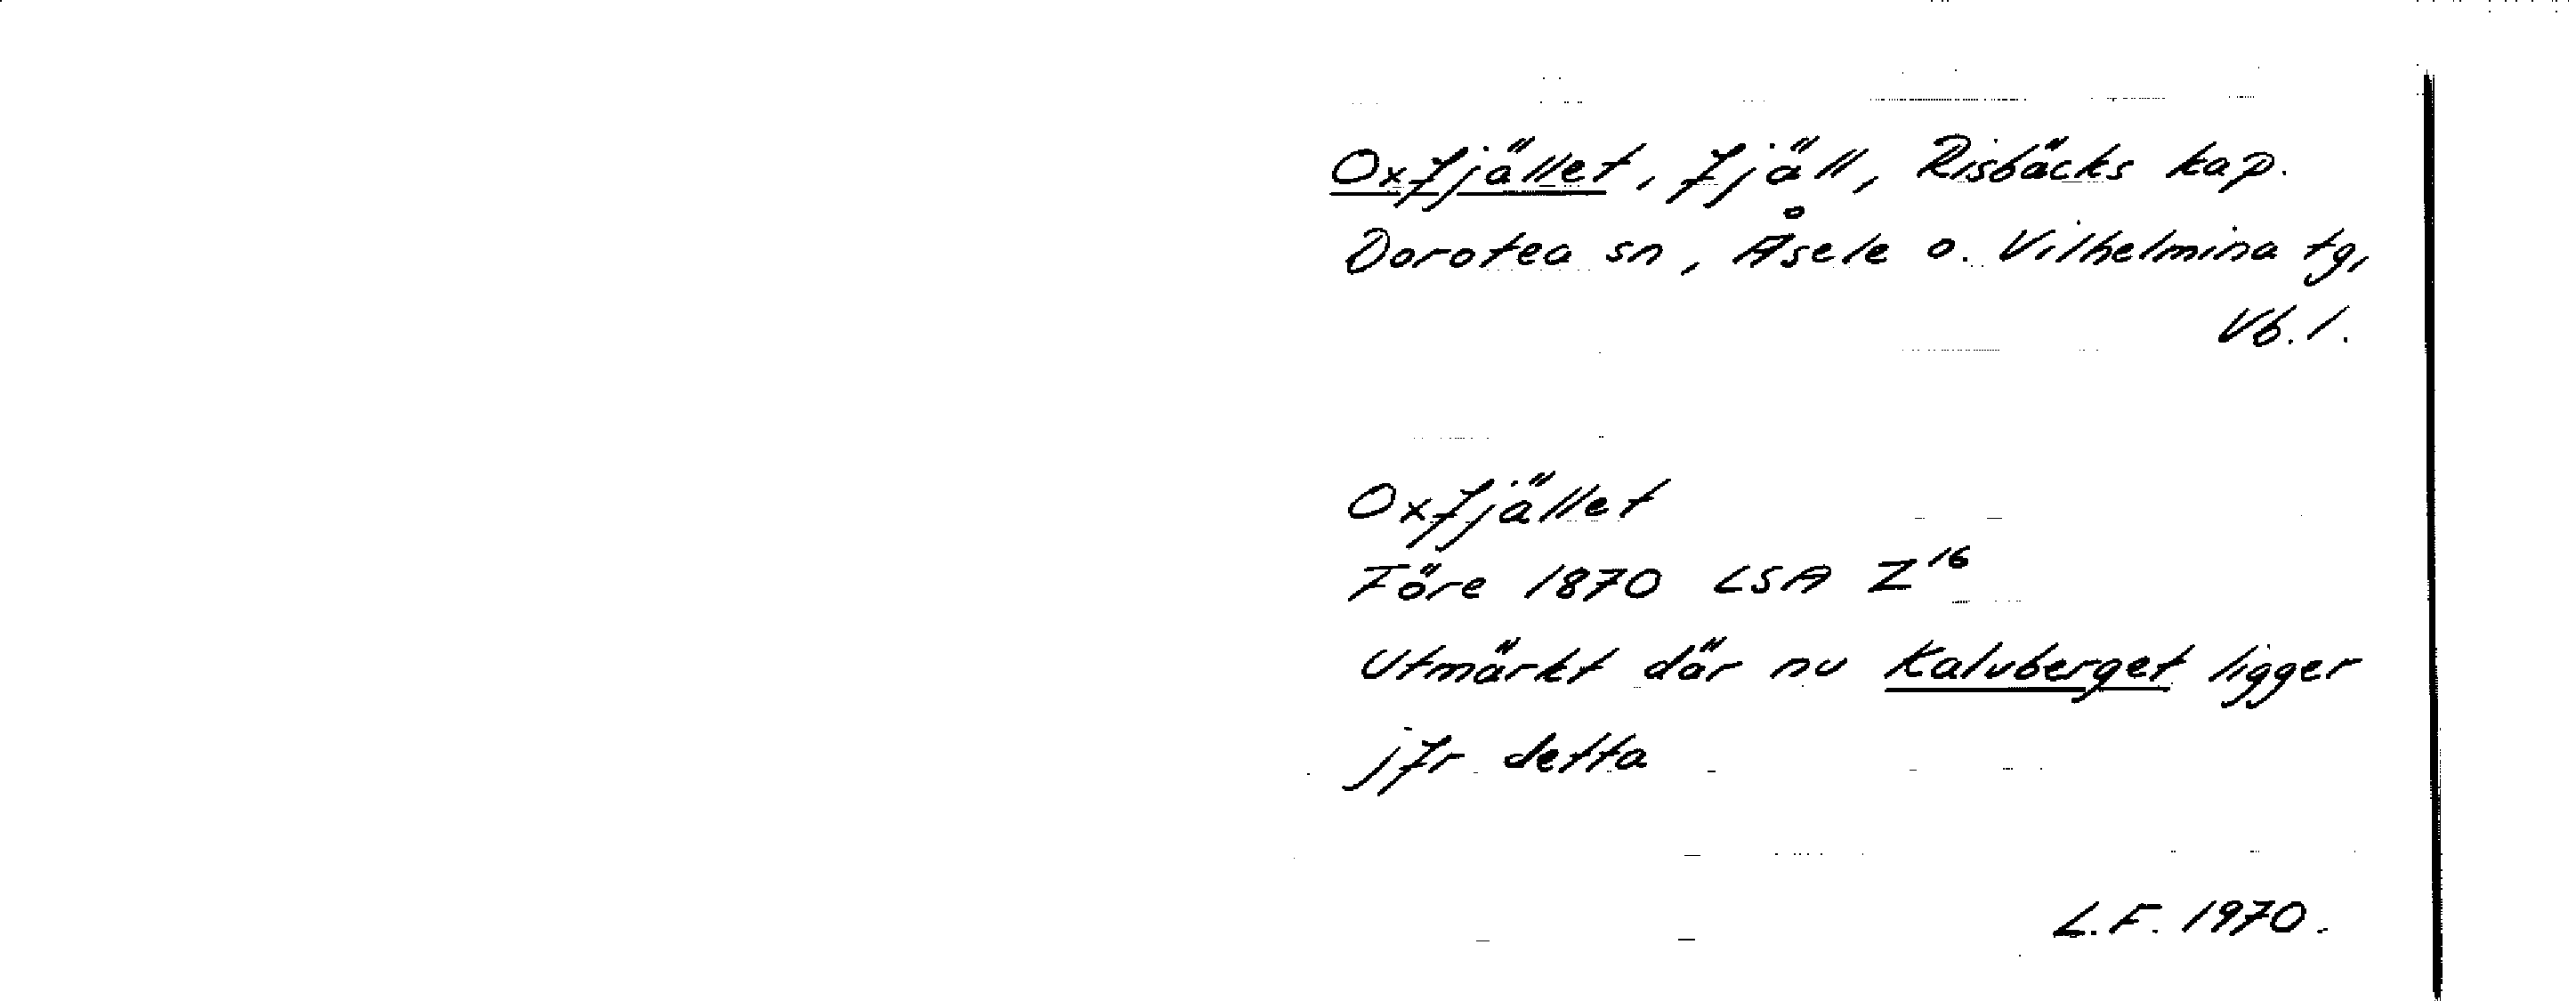 Oxfjället, fjäll, Risbäcks kap.
Dorotea sn, Åsele o. Vilhelmina tg,
Vb. l.
Oxfjället
Före 1870 LSA Z¹⁶
Utmärkt där nu Kalvberget ligger
jfr detta
L.F. 1970.